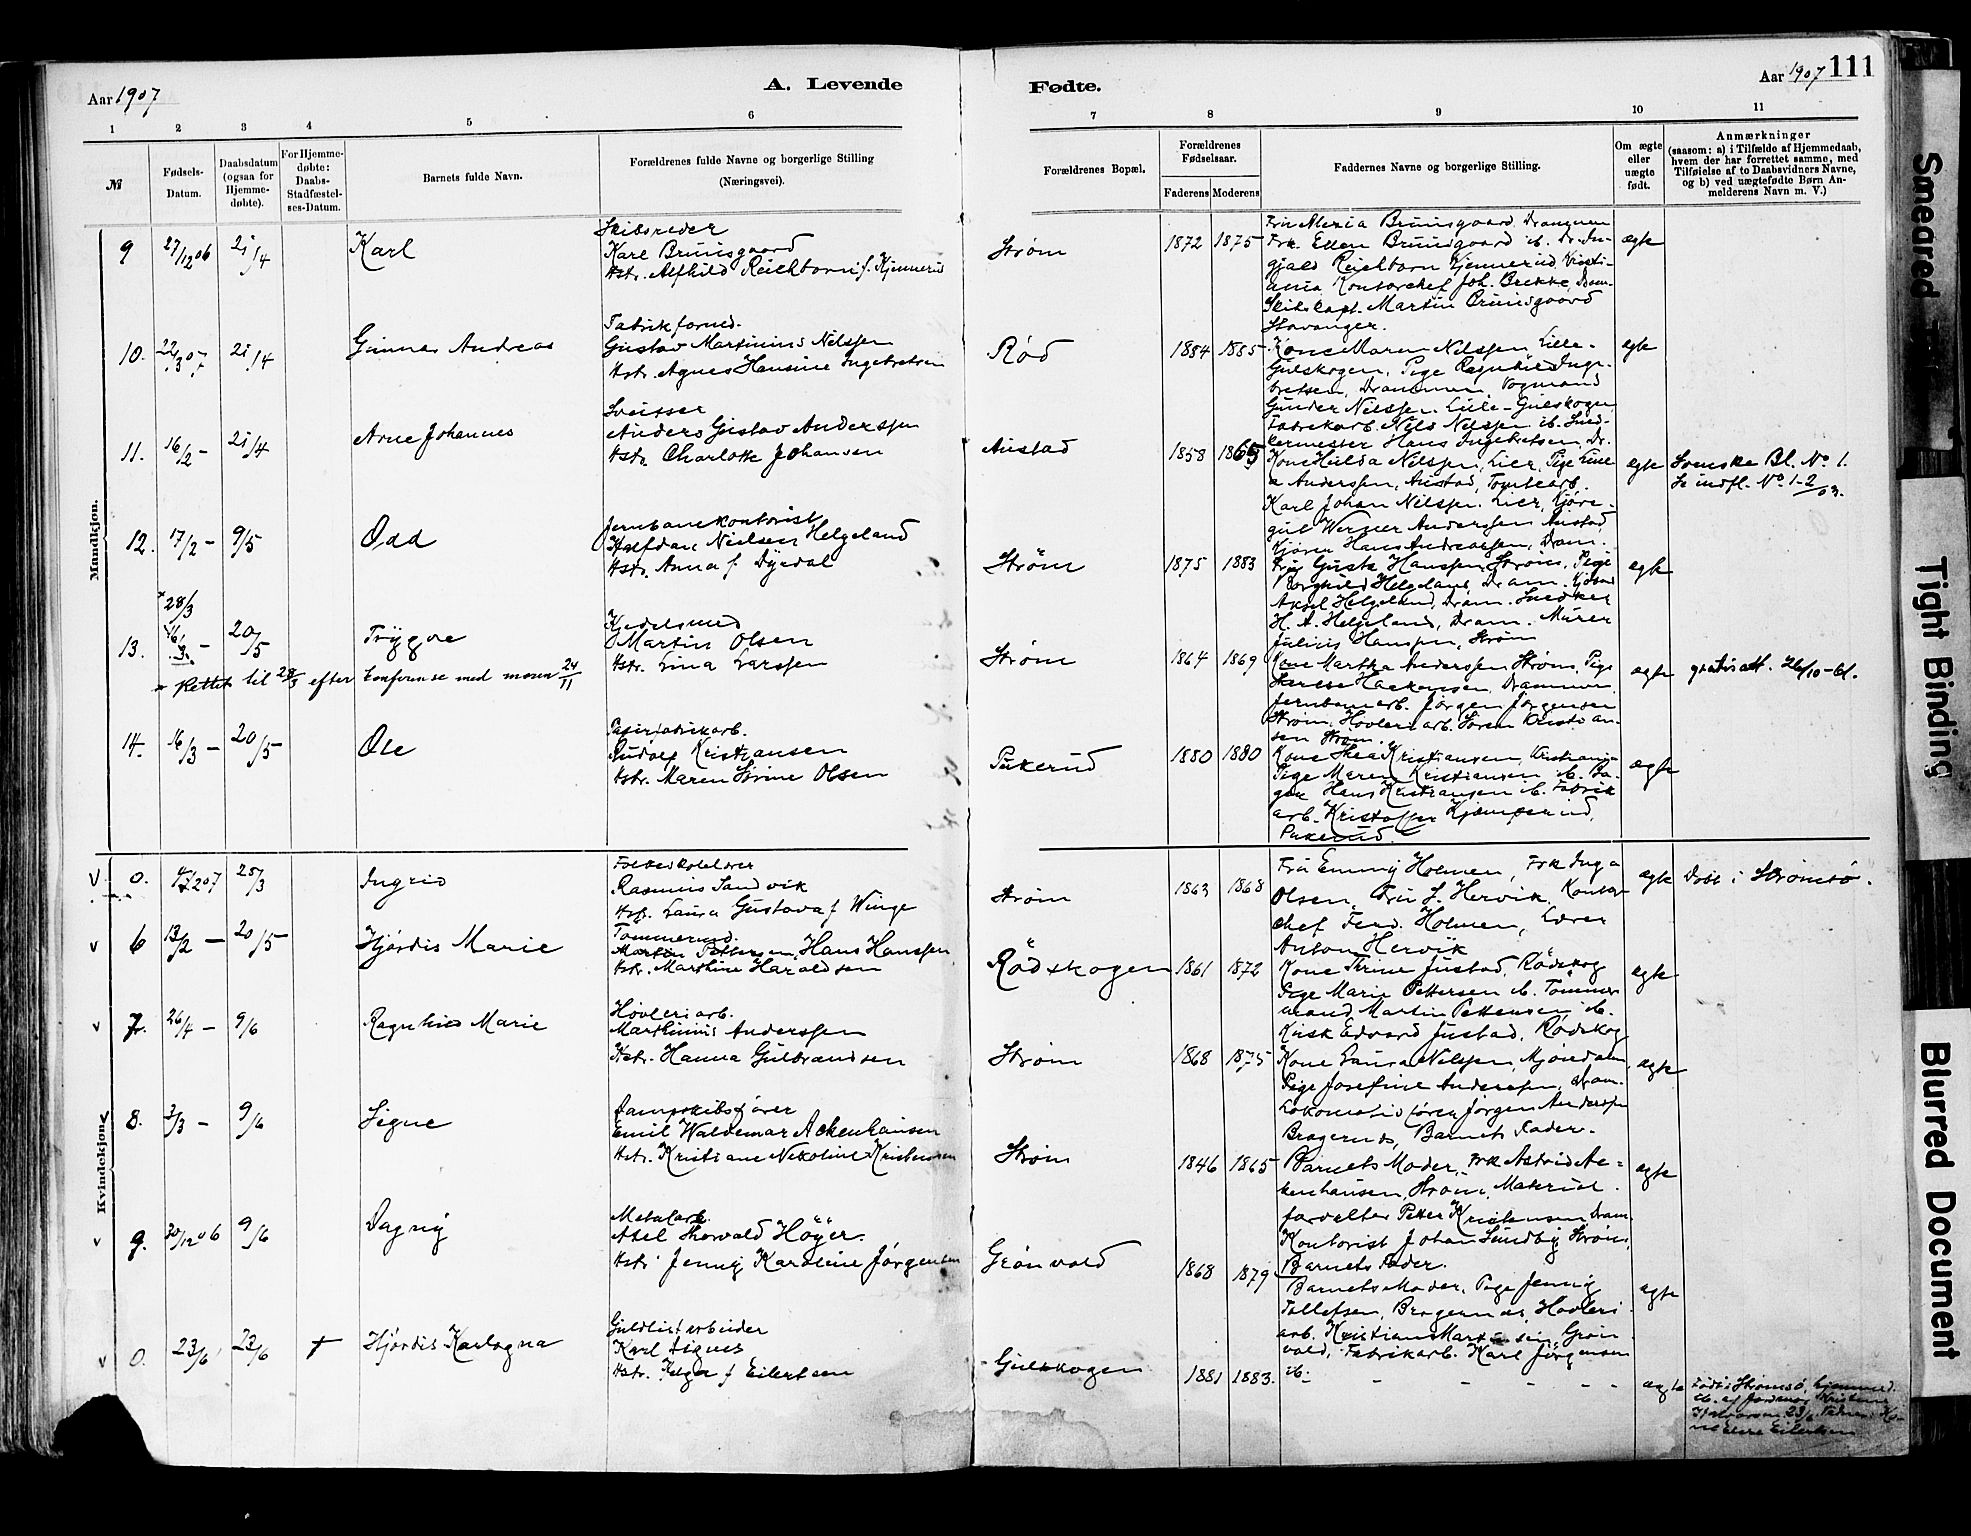 Aar 1907
A. Levende
Fødte.
Aar 1907 111
1 2 3 4 5 6 7 8 9 10 11
№
Fødsels-
Datum.
Daabsdatum
(ogsaa for
Hjemme-
døbte).
For Hjemme-
døbte:
Daabs-
Stadfæstel-
ses-Datum.
Barnets fulde Navn.
Forældrenes fulde Navne og borgerlige Stilling
(Næringsvei).
Forældrenes Bopæl.
Forældrenes
Fødselsaar.
Faderens Moderens
Faddernes Navne og borgerlige Stilling.
Om ægte
eller
uægte
født.
Anmærkninger
(saasom: a) i Tilfælde af Hjemmedaab,
hvem der har forrettet samme, med
Tilføielse af to Daabsvidners Navne,
og b) ved uægtefødte Børn An-
melderens Navn m. V.)
Mandkjøn.
9 27/12 06 21/4 Karl
Skibsreder
Karl Bruusgaard
Hstr. Alfhild Reichborn f. Kjennerud
Strøm 1872 1875
Fru Maria Bruusgaard, Drammen
Frk. Ellen Bruusgaard ib. Dr. In-
gjald Reichborn Kjennerud, Kristi-
ania Kontorchef Joh. Brekke, Dram.
Skibskapt. Martin Bruusgaard
Stavanger.
ægte
10. 22/3 07 21/4 Gunnar Andreas
Fabrikformd.
Gustav Martinius Nilssen
Hstr. Agnes Hansine Ingebretsen
Rød 1884 1885
Kone Maren Nilssen, Lille-
Gulskogen, Pige Ragnhild Inge-
bretsen, Drammen, Vogmand
Gunder Nilssen. Lille-Gulskogen,
Fabrikarb. Nils Nilssen ib. Sned-
kermester Hans Ingebretsen, Dr.
egte
11. 16/2 - 21/4 Arne Johannes
Sveisser
Anders Gustav Anderssen
Hstr. Charlotte Johansen
Austad 1858 1865
Kone Hulda Nilssen, Lier, Pige Line
Anderssen, Austad, Tomtearb.
Karl Johan Nilssen. Lier, Kjøre-
gut Werner Anderssen Austad
Kjører Hans Andreassen, Dram.
egte
Svenske Bl. No 1.
Se indfl. No 1-2/03.
12. 17/2 - 9/5 Odd
Jernbanekontorist
Halfdan Nielsen Helgeland
Hstr. Anna f. Dyrdal
Strøm 1875 1883
Fru Gusta Hanssen, Strøm, Pige
Borghild Helgeland, Dram.
Aksel Helgeland, Dram. Snedker
H. A. Helgeland, Dram. Murer
Julius Hanssen, Strøm
egte
* 28/3
13. 16/3 - 20/5 Tryggve
Kjedelsmed
Martin Olsen
Hstr. Lina Larssen
* Rettet til 28/3 efter konferense med moren 24/11
Strøm 1864 1869
Kone Martha Anderssen Strøm, Pige
Haakensen, Drammen,
Jernbanearb. Jørgen Jørgensen
Strøm, Høvleriarb. Søren Kristian-
sen Strøm.
egte
gratis att. 26/10-61.
14. 16/3 - 20/5 Ole
Papirfabrikarb.
Rudolf Kristiansen
Hstr. Maren Sirine Olsen
Pukerud 1880 1880
Kone Thea Kristiansen, Kristiania
Pige Maren Kristiansen ib. Ba-
ger Hans Kristiansen ib. Fabrik
arb. Kristoffer Kjemperud,
Pukerud.
egte
Kvindekjøn.
V 0. 4/2 07 25/3 Ingrid
Folkeskolelærer
Rasmus Sandvik
Hstr. Laura Gustava f Winge
Strøm 1863 1868
Fru Emmy Holmen, Frk Inga
Olsen, Fru S. Hervik, Kontor
chef Ferd. Holmen, Lærer
Anton Hervik
egte Døbt i Strømsø.
v 6 13/2 - 20/5 - Hjørdis Marie
Tømmermd.
Martin Pettersen, Hans Hanssen
Hstr. Marthine Haraldsen
Rødskogen 1861 1872
Kone Trine Justad, Rødskog
Pige Marie Pettersen ib. Tømmer
mand Martin Pettersen ib.
Kusk Edvard Justad, Rødskog
egte
v 7. 26/4 - 9/6 Ragnhild Marie
Høvleriarb.
Marthinius Anderssen
Hstr. Hanna Gulbrandsen
Strøm 1868 1875
Kone Laura Nilssen, Mjøndalen
Pige Josefine Anderssen, Dram.
Lokomotivfører Jørgen Anderssen
Bragernes, Barnets Fader.
egte
V 8. 3/3 - 9/6 Signe
Dampskibsfører
Emil Waldemar Ackenhausen
Hstr. Kristiane Nikoline Kristensen
Strøm 1846 1865
Barnets Moder, Frk Astrid Ac-
kenhausen, Strøm, Material
forvalter Petter Kristensen Dram.
Kontorist Johan Sundby, Strøm,
Barnets Fader.
egte
v 9. 30/12 06 9/6 Dagny
Metalarb.
Axel Thorvald Höyer.
Hstr. Jenny Karoline Jørgensen
Grønvold 1868 1879
Barnets Moder, Pige Jenny
Tollefsen, Bragernes, Høvleri
arb. Kristian Martinsen, Grøn
vold, Fabrikarb. Karl Jørgensen
ib.
egte
v 0. 23/6 23/6 + Hjørdis Karlogna
Guldlistarbeider
Karl
Hstr. Helga f Eilertsen
Gulskogen 1881 1883. - - - - - -
egte
Født i Strømsø, hjemmed.
Smeared
Tight Binding
Blurred Document